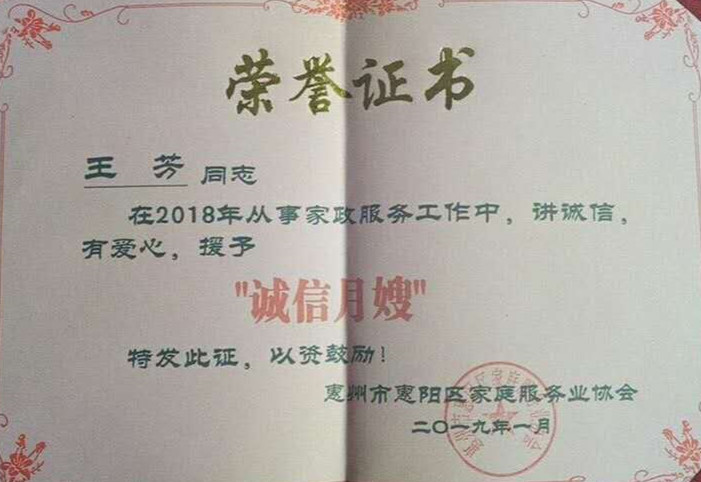 荣誉证书
王 芳 同志
在2018年从事家政服务工作中，讲诚信，
有爱心，援予
"诚信月嫂"
特发此证，以资鼓励！
惠州市惠阳区家庭服务业协会
二〇一九年一月